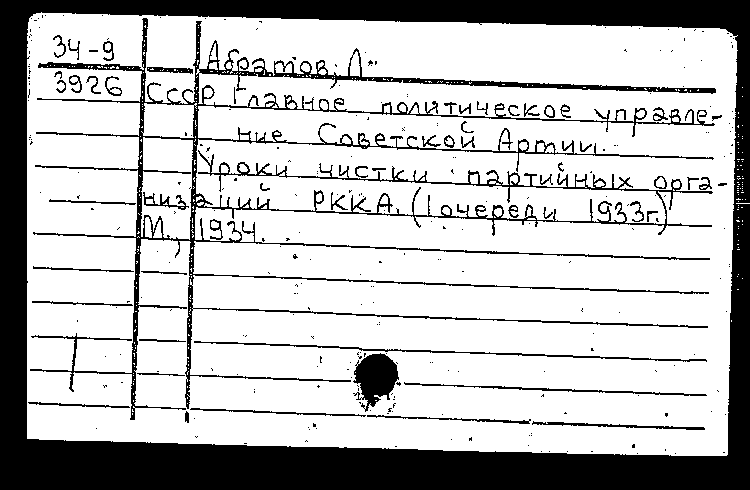 34-9 Абратов, Л"
3926 СССР. Главное политическое управле-
ние Советской Артии.
Уроки чистки партийных орга-
низаций РККА. (I очереди 1933г.)
М., 1934.